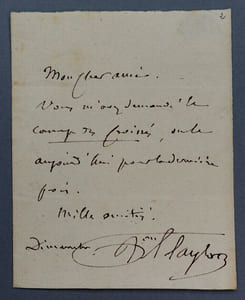 2
Mon cher ami.
Vous m'avez demandé le
camp des Croisés, on le
aujourd'hui pour la dernière
fois.
Mille amitiés.
Dimanche Bon Taylor